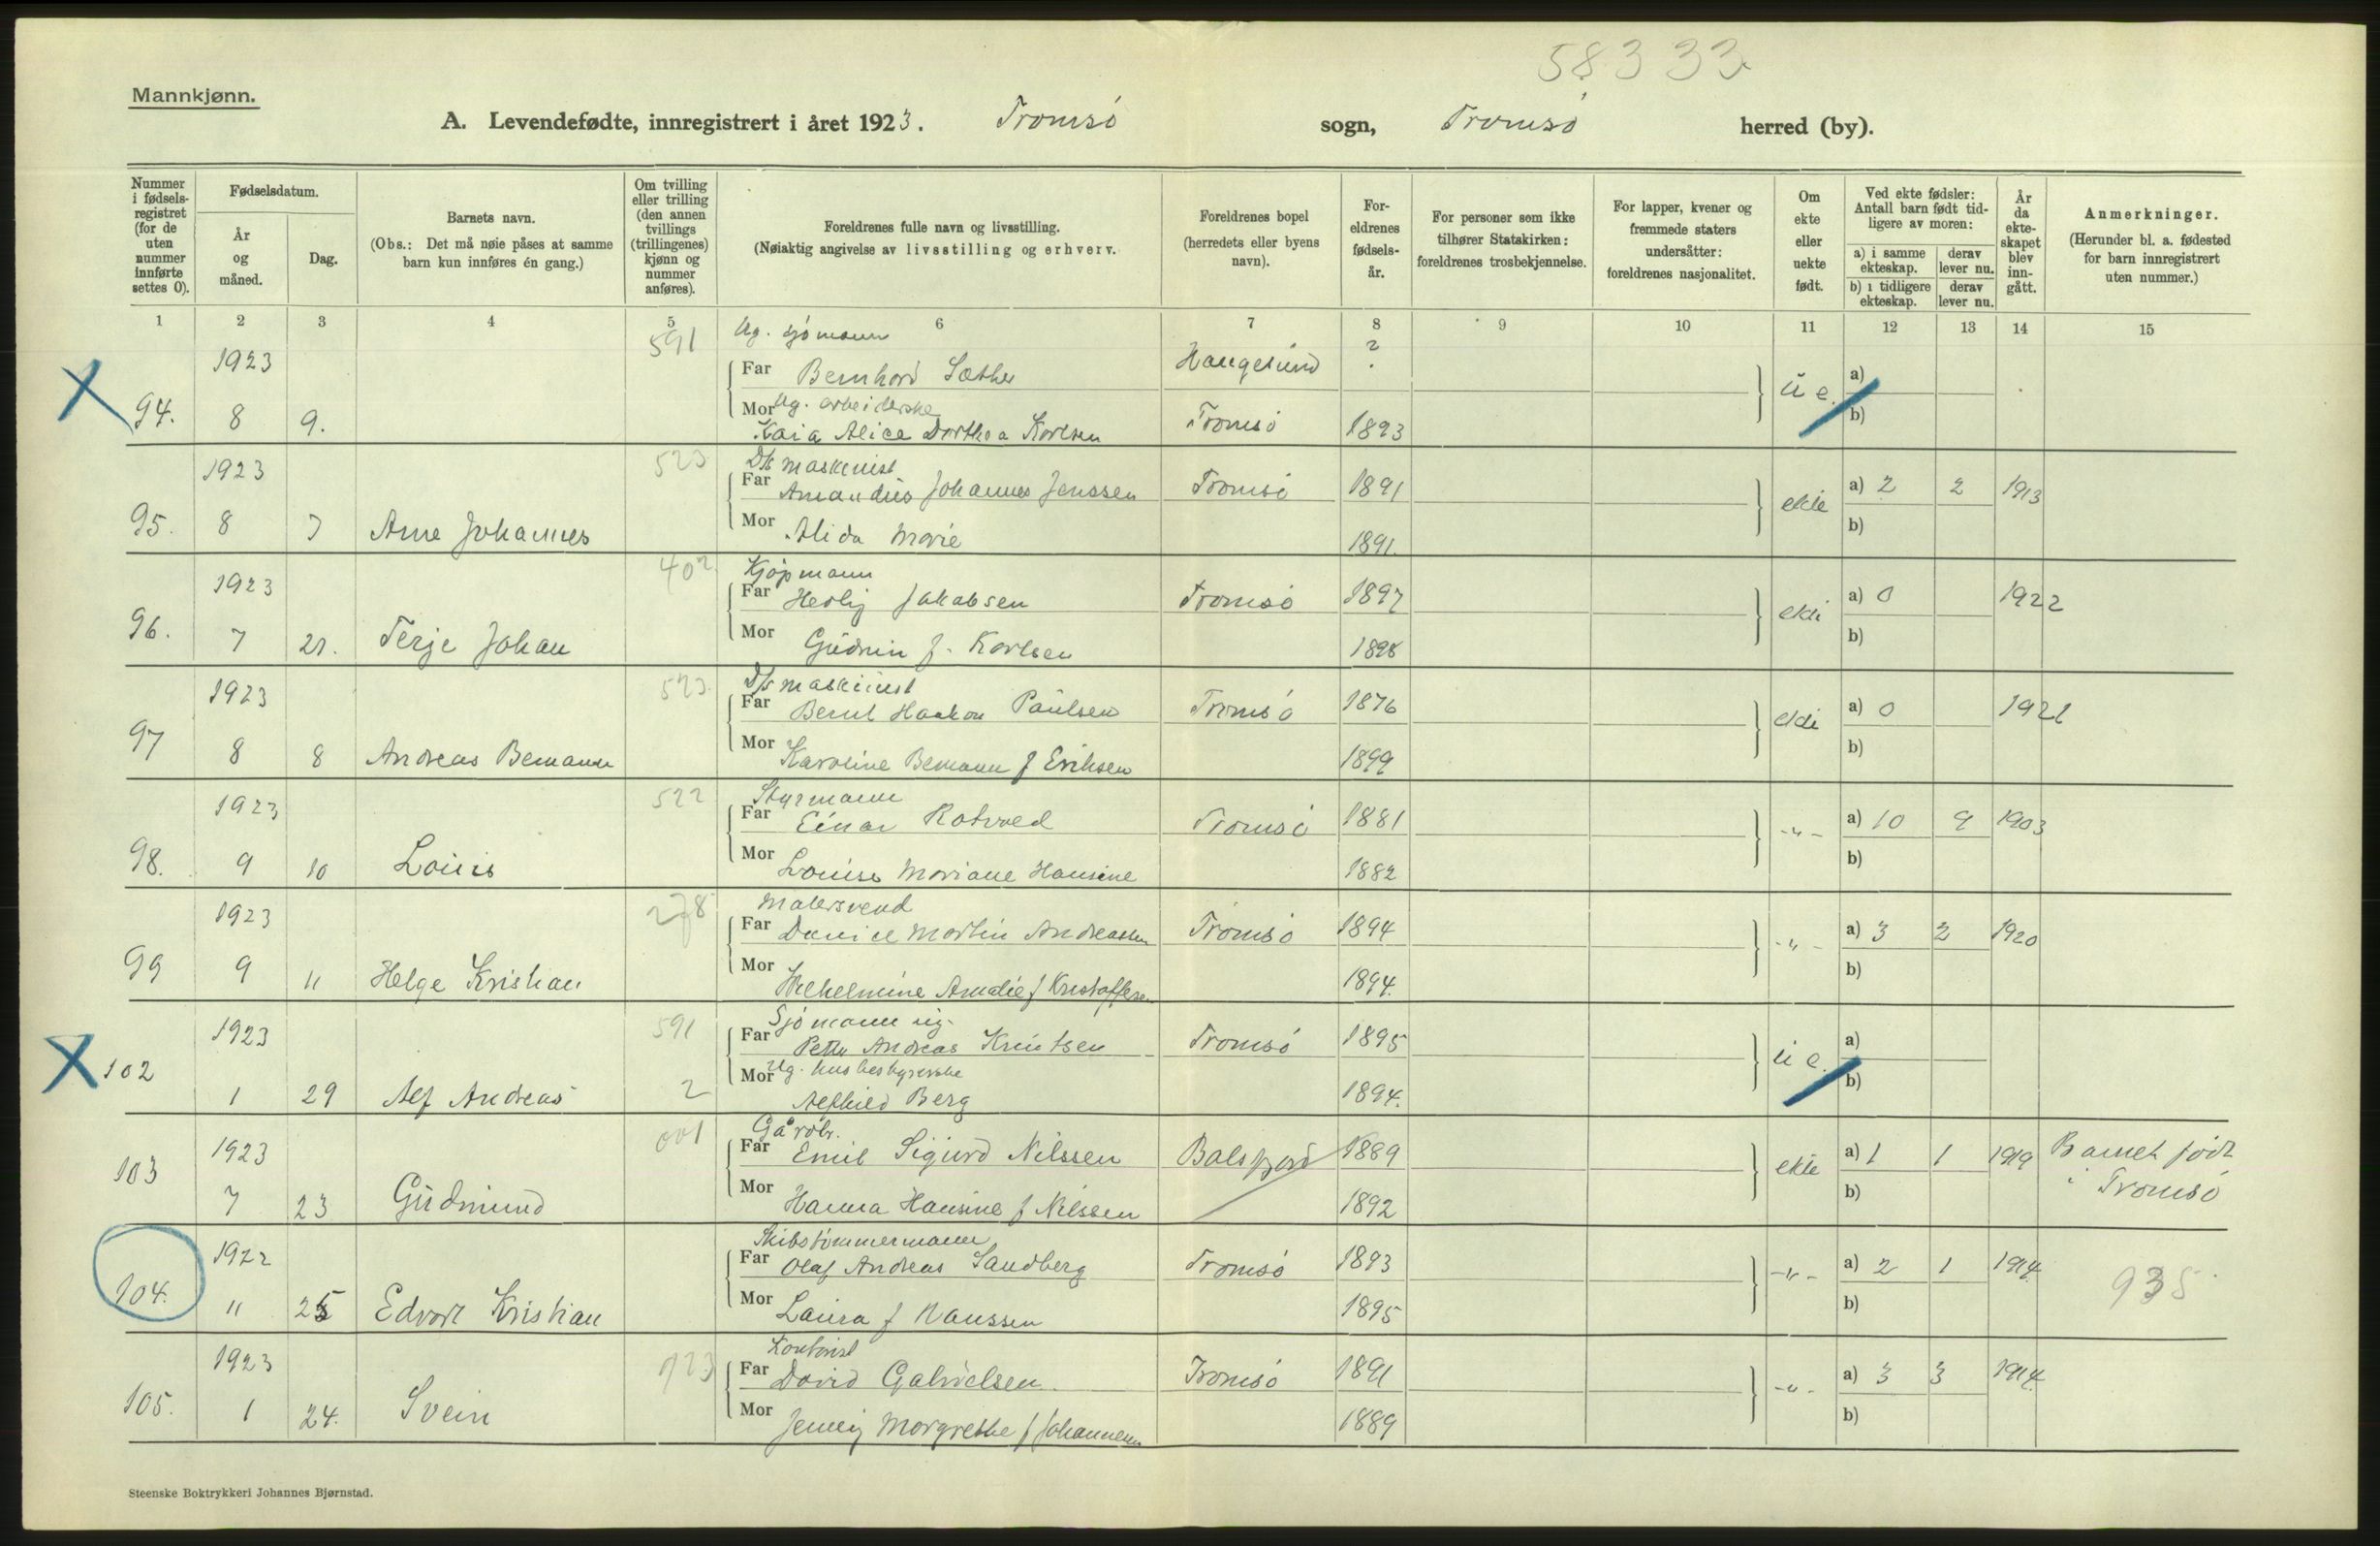 58333
Mannkjønn.
A. Levendefødte, innregistrert i året 1923. Tromsø sogn, Tromsø herred (by).
Nummer i fødsels-registret (for de uten nummer innførte settes 0).
Fødselsdatum.
År og måned.
Dag.
Barnets navn.
(Obs.: Det må nøie påses at samme barn kun innføres én gang.)
Om tvilling eller trilling (den annen tvillings (trillingenes) kjønn og nummer anføres).
Foreldrenes fulle navn og livsstilling.
(Nøiaktig angivelse av livsstilling og erhverv.
Foreldrenes bopel (herredets eller byens navn).
For-eldrenes fødsels-år.
For personer som ikke tilhører Statskirken: foreldrenes trosbekjennelse.
For lapper, kvener og fremmede staters undersåtter: foreldrenes nasjonalitet.
Om ekte eller uekte født.
Ved ekte fødsler: Antall barn født tid-ligere av moren:
a) i samme ekteskap.
derav lever nu.
b) i tidligere ekteskap.
derav lever nu.
År da ekte-skapet blev inn-gått.
Anmerkninger.
(Herunder bl. a. fødested for barn innregistrert uten nummer.)
1 2 3 4 5 6 7 8 9 10 11 12 13 14 15
591 Ug. sjømann
1923 Far Bernhard Sæther Haugesund ?
X 94. 8 9. Mor Ug. arbeiderske u e. a)
Kaia Alice Dorthea Karlsen Tromsø 1893 b)
523 D/s maskinist
1923 Far Amandus Johannes Jenssen Tromsø 1891 ekte a) 2 2 1913
95. 8 7 Arne Johannes Mor Alida Marie 1891. b)
402 Kjøpmann
1923 Far Herlig Jakobsen Tromsø 1897 ekte a) 0 1922
96. 7 21. Terje Johan Mor Gudrun f. Karlsen 1898 b)
523 D/s maskinist
1923 Far Bernt Haakon Paulsen Tromsø 1876 ekte a) 0 1921
97 8 8 Andreas Bemann Mor Karoline Bemann f Eriksen 1899 b)
522 Styrmann
1923 Far Einar Rotvold Tromsø 1881 -"- a) 10 9 1903
98. 9 10 Louis Mor Louise Mariane Hansine 1882 b)
278 Malersvend
1923 Far Daniel Martin Andreassen Tromsø 1894 -"- a) 3 2 1920
99 9 11 Helge Kristian Mor Wilhelmine Amalie f Kristoffersen 1894. b)
591 Sjømann ug.
1923 Far Petter Andreas Knutsen Tromsø 1895 u e. a)
X 102 1 29 Alf Andreas 2 Mor Ug. husbestyrerske
Alfhild Berg 1894. b)
001 Gårdbr.
1923 Far Emil Sigurd Nilssen Balsfjord 1889 ekte a) 1 1 1919 Barnet født
103 7 23 Gudmund Mor Hanna Hansine f Nilssen 1892 b) i Tromsø
Skibstømmermann
1922 Far Olaf Andreas Sandberg Tromsø 1893 -"- a) 2 1 1914. 935
104. 11 25 Edvart Kristian Mor Laura f Hanssen 1895 b)
723 Kontorist
1923 Far David Gabrielsen Tromsø 1891 -"- a) 3 3 1914.
105. 1 24. Svein Mor Jenny Margrethe f Johannessen 1889 b)
Steenske Boktrykkeri Johannes Bjørnstad.